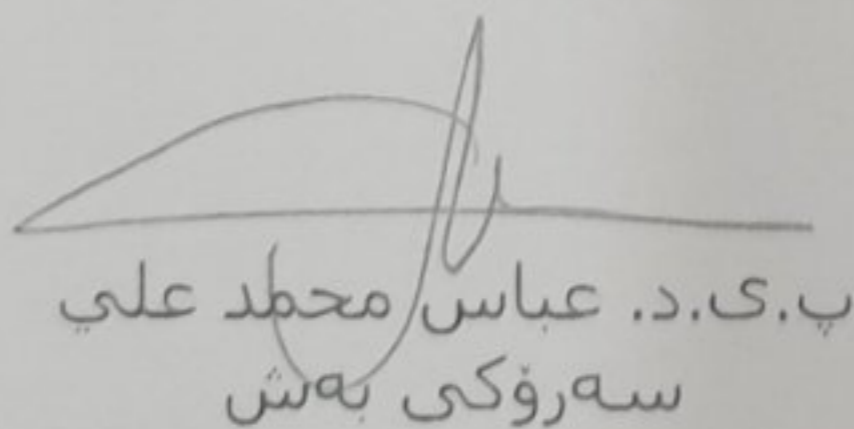 پ.ی.د. عباس محمد علي
سەرۆکی بەش